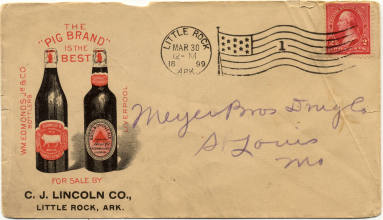 THE
"PIG BRAND"
IS THE
BEST
WM. EDMONDS, JR & CO.
BOTTLERS
LIVERPOOL
FOR SALE BY
C. J. LINCOLN CO.,
LITTLE ROCK, ARK.
LITTLE ROCK
MAR 30
12-M
18 99
ARK.
1
Meyer Bros Drug Co
St Louis
Mo